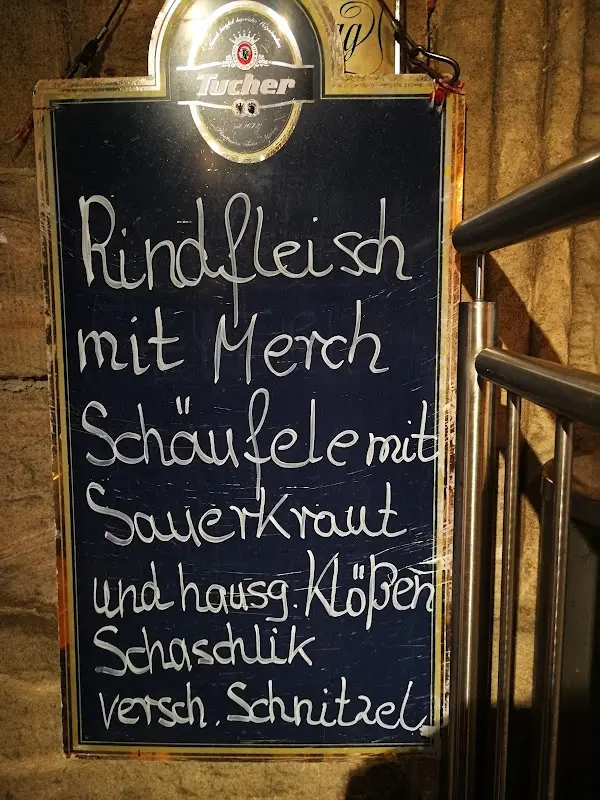 Tucher
Rindfleisch
mit Merch
Schäufele mit
Sauerkraut
und hausg. Klößen
Schaschlik
versch. Schnitzel